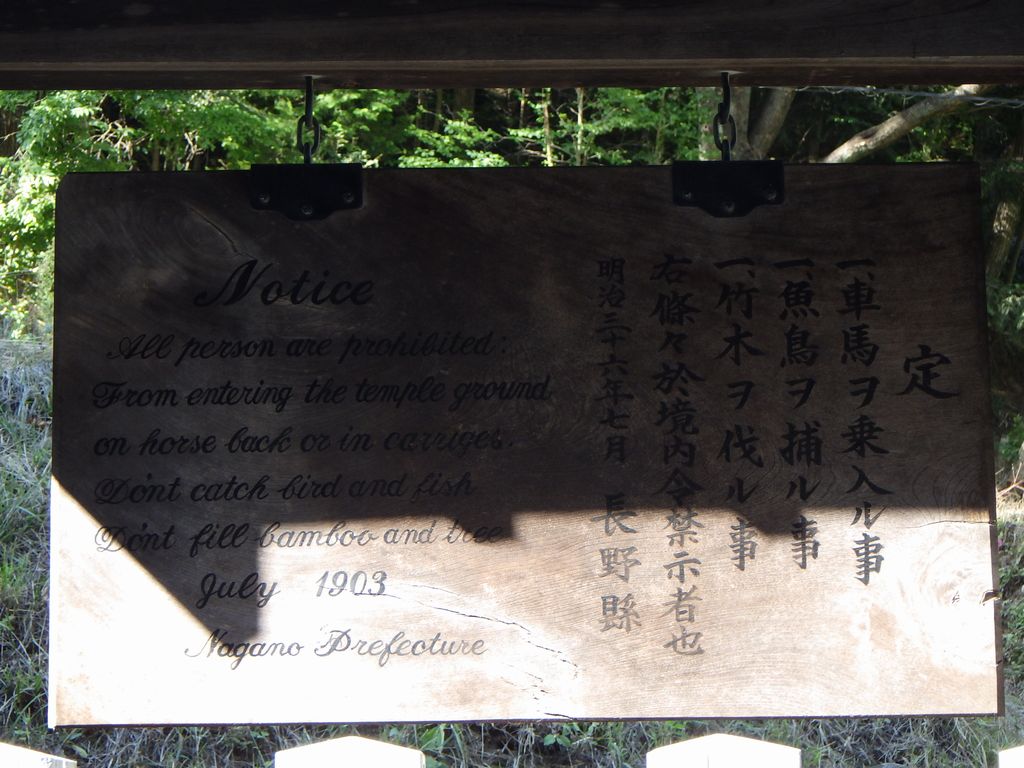 Notice
All person are prohibited:
From entering the temple ground
on horse back or in carriges.
Do'nt catch bird and fish
Do'nt fill bamboo and tree
July 1903
Nagano Prefecture
定
一、車馬ヲ乗入ル事
一、魚鳥ヲ捕ル事
一、竹木ヲ伐ル事
右條々於境内令禁示者也
明治三十六年七月 長野縣